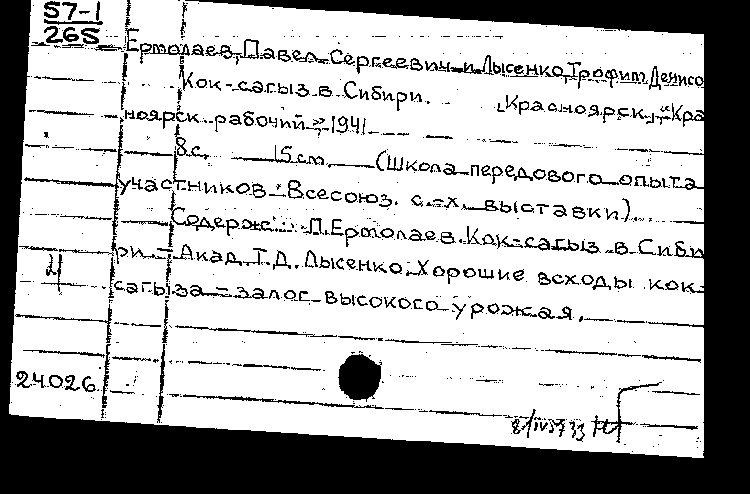 57-1
265
Ермолаев, Павел Сергеевич и Лысенко, Трофим Денисо
Кок-сагыз в Сибири. Красноярск, "Кра
ноярск. рабочий", 1941
8 с. 15 см. (Школа передового опыта
участников Всесоюз. с.-х. выставки).
Содерж.: П. Ермолаев. Кок-сагыз в Сиби
ри. - Акад. Т. Д. Лысенко. Хорошие всходы кок-
сагыза - залог высокого урожая.
24026